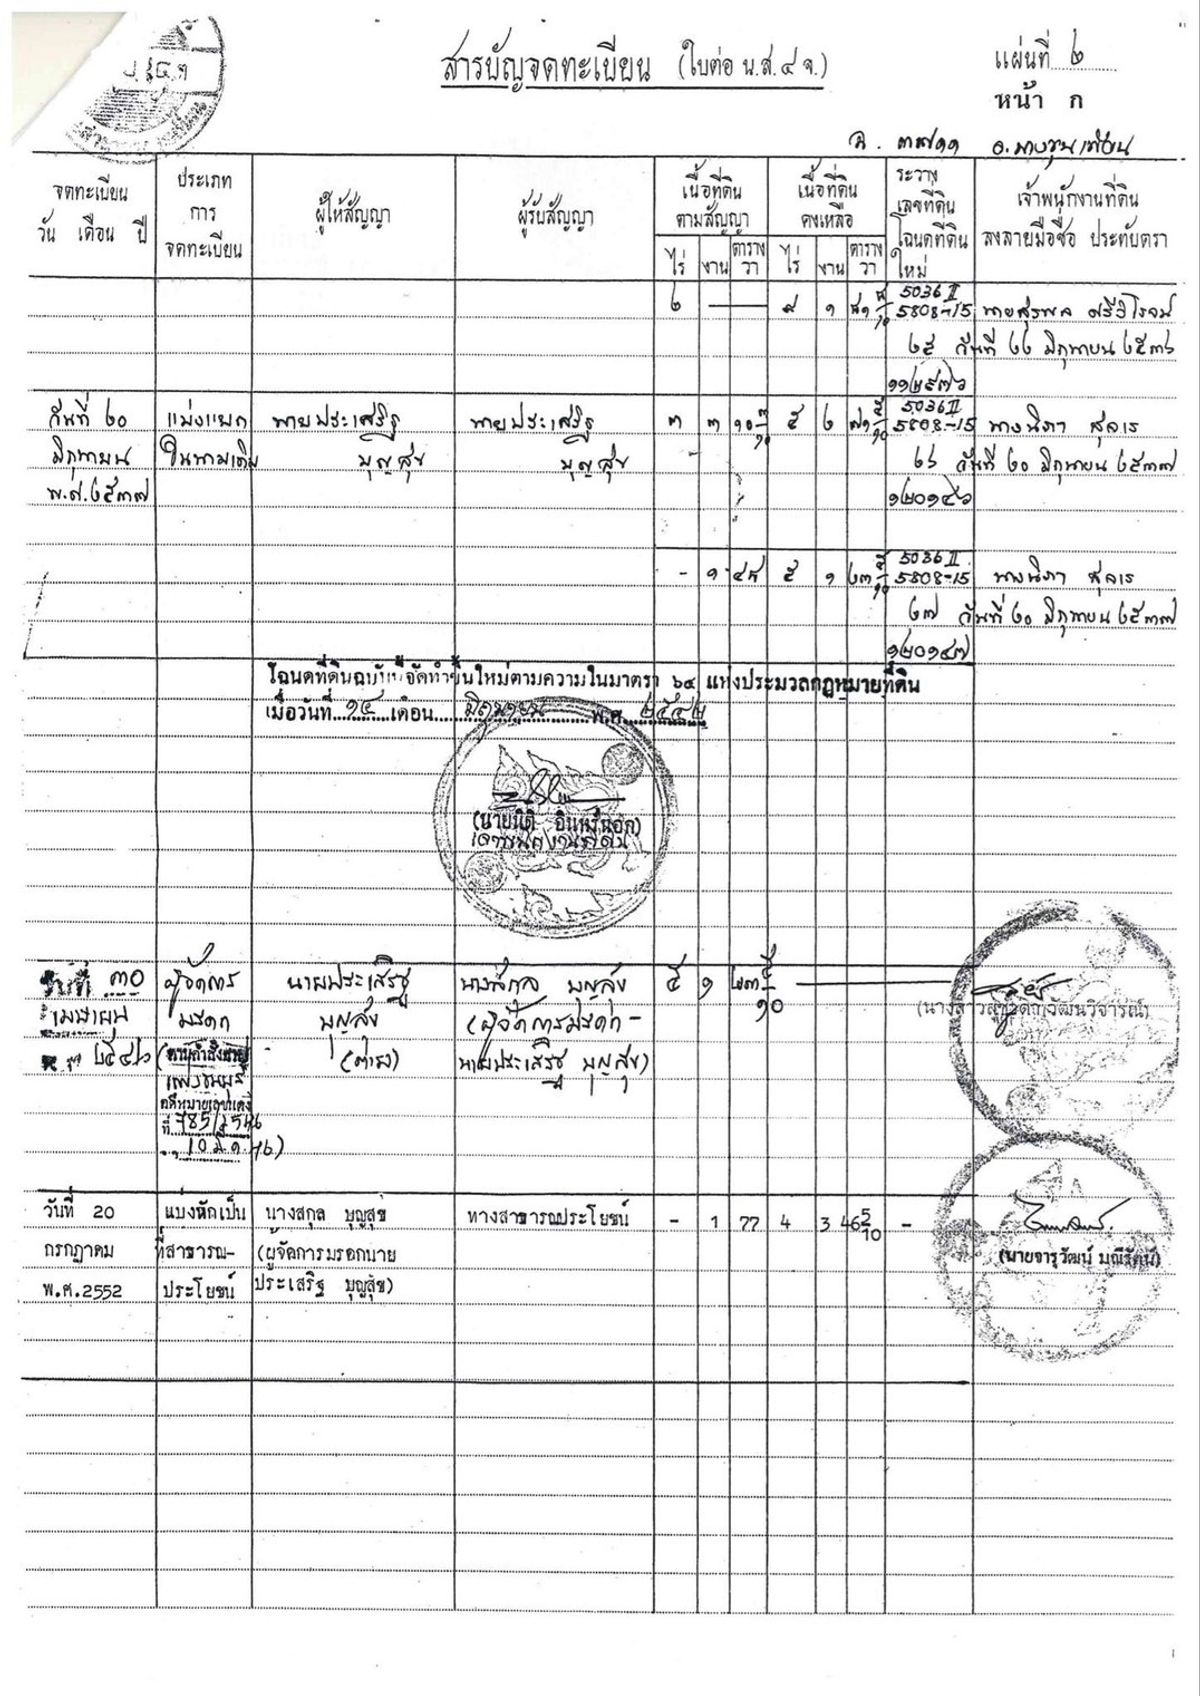 สารบัญจดทะเบียน (ใบต่อ น.ส.๔ จ.)
แผ่นที่ ๒
หน้า ก
อ.บางขุนเทียน
จดทะเบียน
วัน เดือน ปี
ประเภท
การ
จดทะเบียน
ผู้ให้สัญญา
ผู้รับสัญญา
เนื้อที่ดิน
ตามสัญญา
ไร่ งาน ตาราง
วา
เนื้อที่ดิน
คงเหลือ
ไร่ งาน ตาราง
วา
ระวาง
เลขที่ดิน
โฉนดที่ดิน
ใหม่
เจ้าพนักงานที่ดิน
ลงลายมือชื่อ ประทับตรา
๒ — ๙ ๑
5036 II
5808-15
๒๕ วันที่ ๒๒ มิถุนายน ๒๕๓๖
๑๑๒๙๗๖
วันที่ ๒๐ แบ่งแยก นายประเสริฐ นายประเสริฐ ๓ ๓ ๕ ๒ 5036 II
5808-15
มิถุนายน ในนามเดิม บุญสุข บุญสุข ๒๖ วันที่ ๒๐ มิถุนายน ๒๕๓๗
พ.ศ.๒๕๓๗ ๑๒๐๑๔๖
- ๑ ๔๘ ๕ ๑ ๒๓ ๕/๑๐ 5036 II
5808-15
๒๗ วันที่ ๒๐ มิถุนายน ๒๕๓๗
๑๒๐๑๔๗
โฉนดที่ดินฉบับนี้จัดทำขึ้นใหม่ตามความในมาตรา ๖๔ แห่งประมวลกฎหมายที่ดิน
เมื่อวันที่ ๑๔ เดือน มิถุนายน พ.ศ. ๒๕๔๒
เจ้าพนักงานที่ดิน
วันที่ ๓๐ ผู้จัดการ นายประเสริฐ นางสกุล บุญสุข ๕ ๑ ๒๓ ๕/๑๐
เมษายน มรดก บุญสุข (ผู้จัดการมรดก-
๒๕๔๖ (ตามคำสั่งศาล (ตาย) นายประเสริฐ บุญสุข)
แพ่งธนบุรี
คดีหมายเลขแดง
ที่ 785/2546
10 มี.ค. 46)
วันที่ 20 แบ่งหักเป็น นางสกุล บุญสุข ทางสาธารณประโยชน์ - 1 77 4 3 46 5/10 -
กรกฎาคม ที่สาธารณ- (ผู้จัดการมรดกนาย
พ.ศ.2552 ประโยชน์ ประเสริฐ บุญสุข)
(นายจารุวัฒน์ มณีรัตน์)